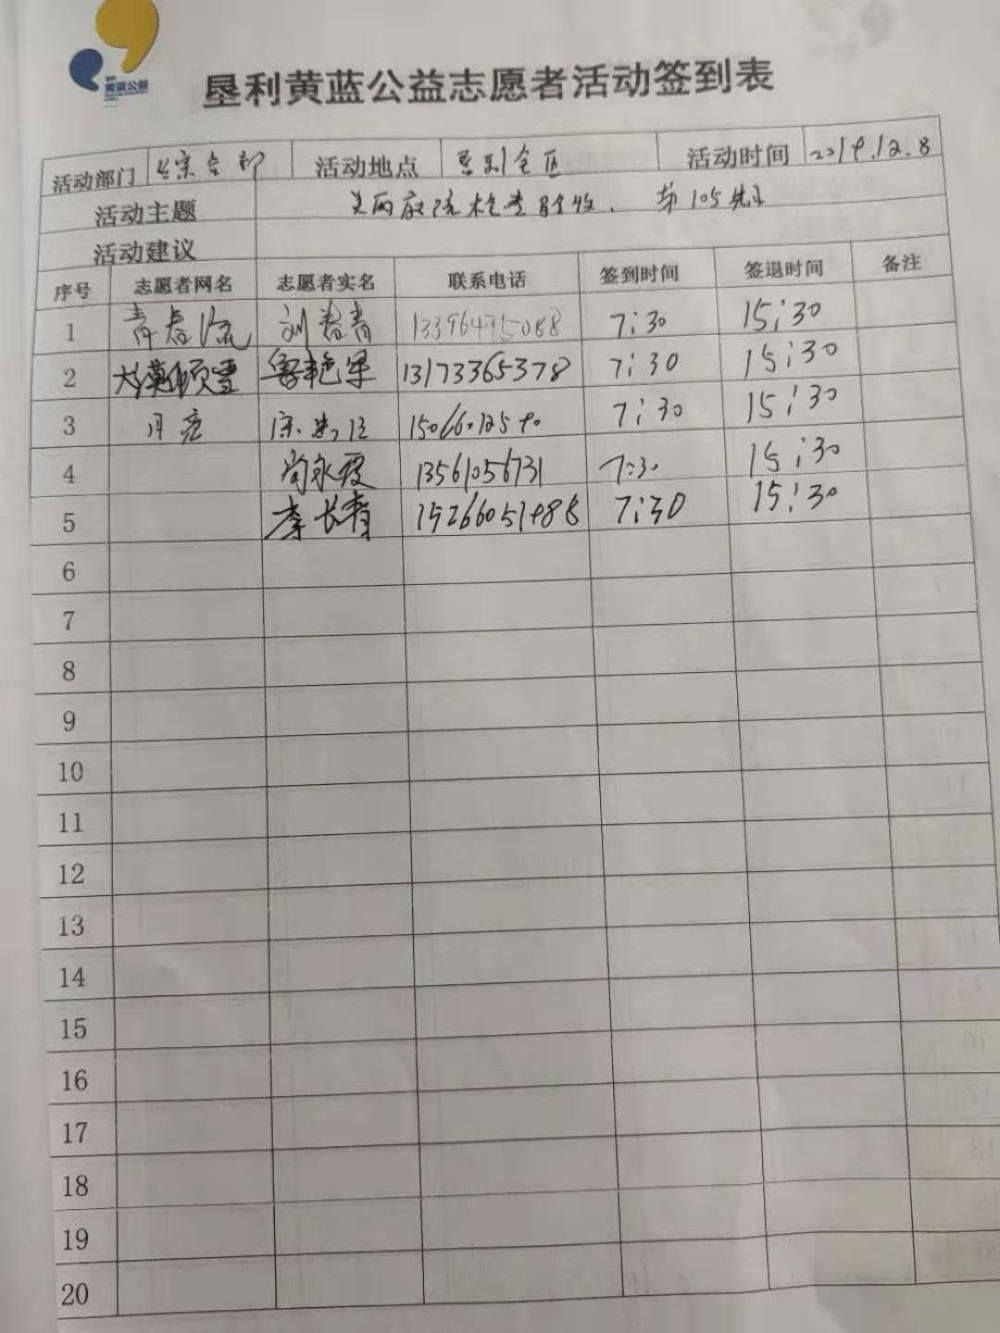 黄蓝公益
垦利黄蓝公益志愿者活动签到表
活动部门 综合部 活动地点 垦利全区 活动时间 2019.12.8
活动主题 美丽庭院检查验收. 第105
活动建议
序号 志愿者网名 志愿者实名 联系电话 签到时间 签退时间 备注
1 青春流 刘春青 13396495088 7:30 15:30
2 鲁艳军 13173365378 7:30 15:30
3 月亮 7:30 15:30
4 尚永霞 13561056731 7:30 15:30
5 李长青 7:30 15:30
6
7
8
9
10
11
12
13
14
15
16
17
18
19
20